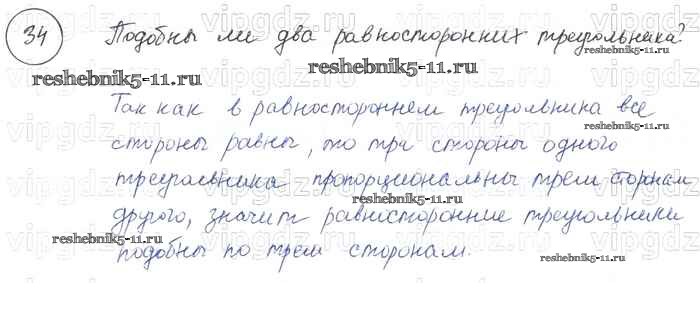 34 Подобны ли два равносторонних треугольника?
Так как в равностороннем треугольника все
стороны равны, то три стороны одного
треугольника пропорциональны трем сторонам
другого, значит равносторонние треугольники
подобны по трем сторонам.
reshebnik5-11.ru
reshebnik5-11.ru
reshebnik5-11.ru
reshebnik5-11.ru
reshebnik5-11.ru
reshebnik5-11.ru
vipgdz.ru